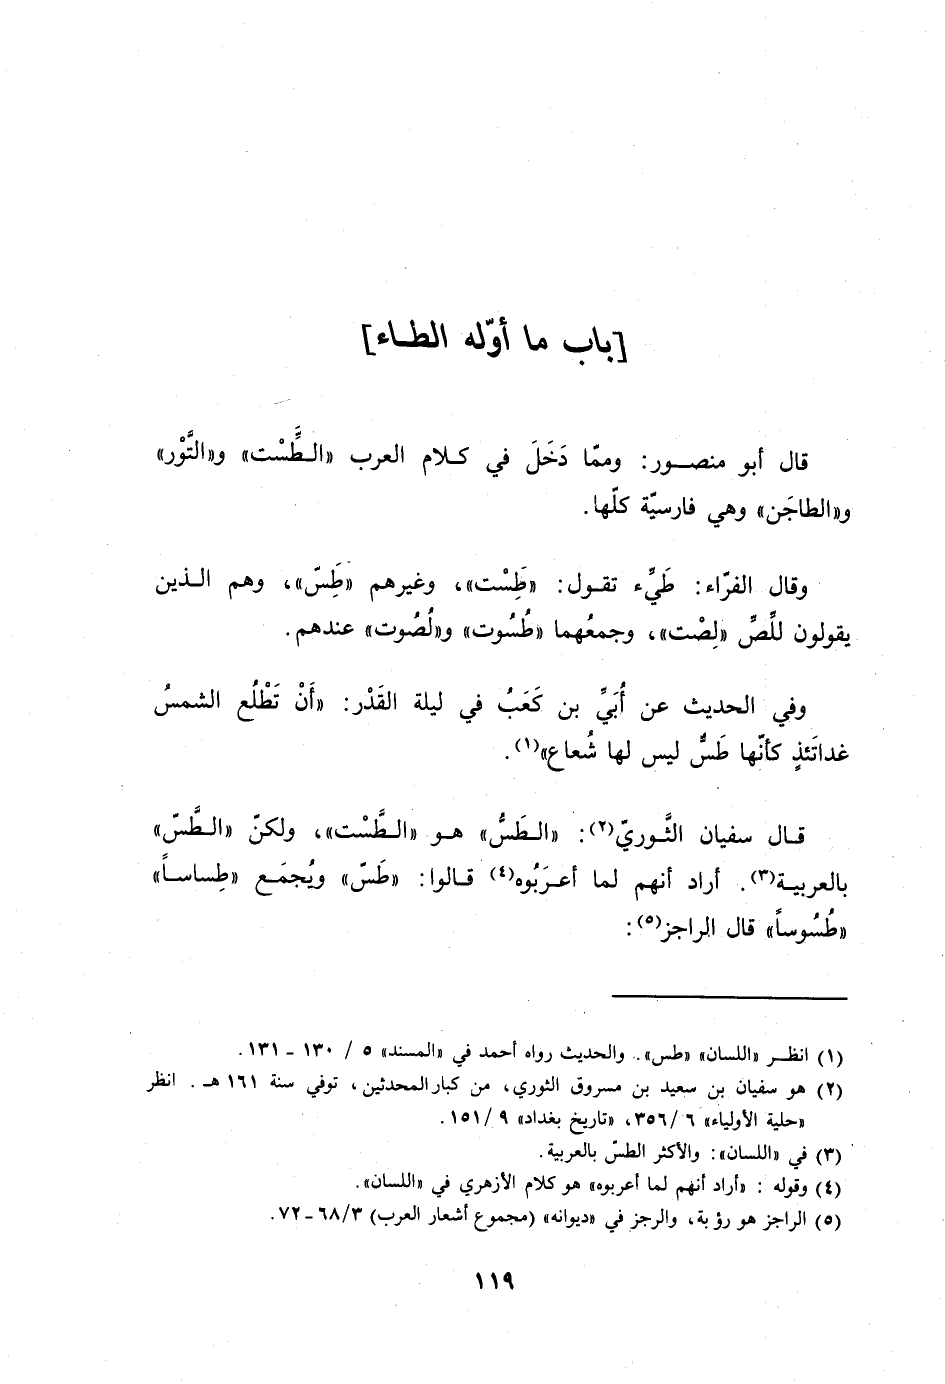 [باب ما أوّله الطاء]
قال أبو منصور: وممّا دَخَلَ في كلام العرب «الطَِّسْت» و«التَّوْر»
و«الطاجَن» وهي فارسيّة كلّها.
وقال الفرّاء: طَيِّء تقول: «طَِسْت»، وغيرهم «طَِسّ»، وهم الذين
يقولون للِّصِّ «لِصْت»، وجمعُهما «طُسُوت» و«لُصُوت» عندهم.
وفي الحديث عن أُبَيِّ بن كَعَبُ في ليلة القَدْر: «أَنْ تَطْلُع الشمسُ
غداتَئذٍ كأنّها طَسٌّ ليس لها شُعاع»(١).
قال سفيان الثَّوريّ(٢): «الطَسُّ» هو «الطَّسْت»، ولكنّ «الطَّسّ»
بالعربية(٣). أراد أنهم لما أعرَبُوه(٤) قالوا: «طَسّ» ويُجمَع «طِساساً»
«طُسُوساً» قال الراجز(٥):
(١) انظر «اللسان» «طس». والحديث رواه أحمد في «المسند» ٥ / ١٣٠ - ١٣١.
(٢) هو سفيان بن سعيد بن مسروق الثوري، من كبار المحدثين، توفي سنة ١٦١ هـ. انظر
«حلية الأولياء» ٦ /٣٥٦، «تاريخ بغداد» ٩ /١٥١.
(٣) في «اللسان»: والأكثر الطسّ بالعربية.
(٤) وقوله : «أراد أنهم لما أعربوه» هو كلام الأزهري في «اللسان».
(٥) الراجز هو رؤبة، والرجز في «ديوانه» (مجموع أشعار العرب) ٦٨/٣-٧٢.
١١٩